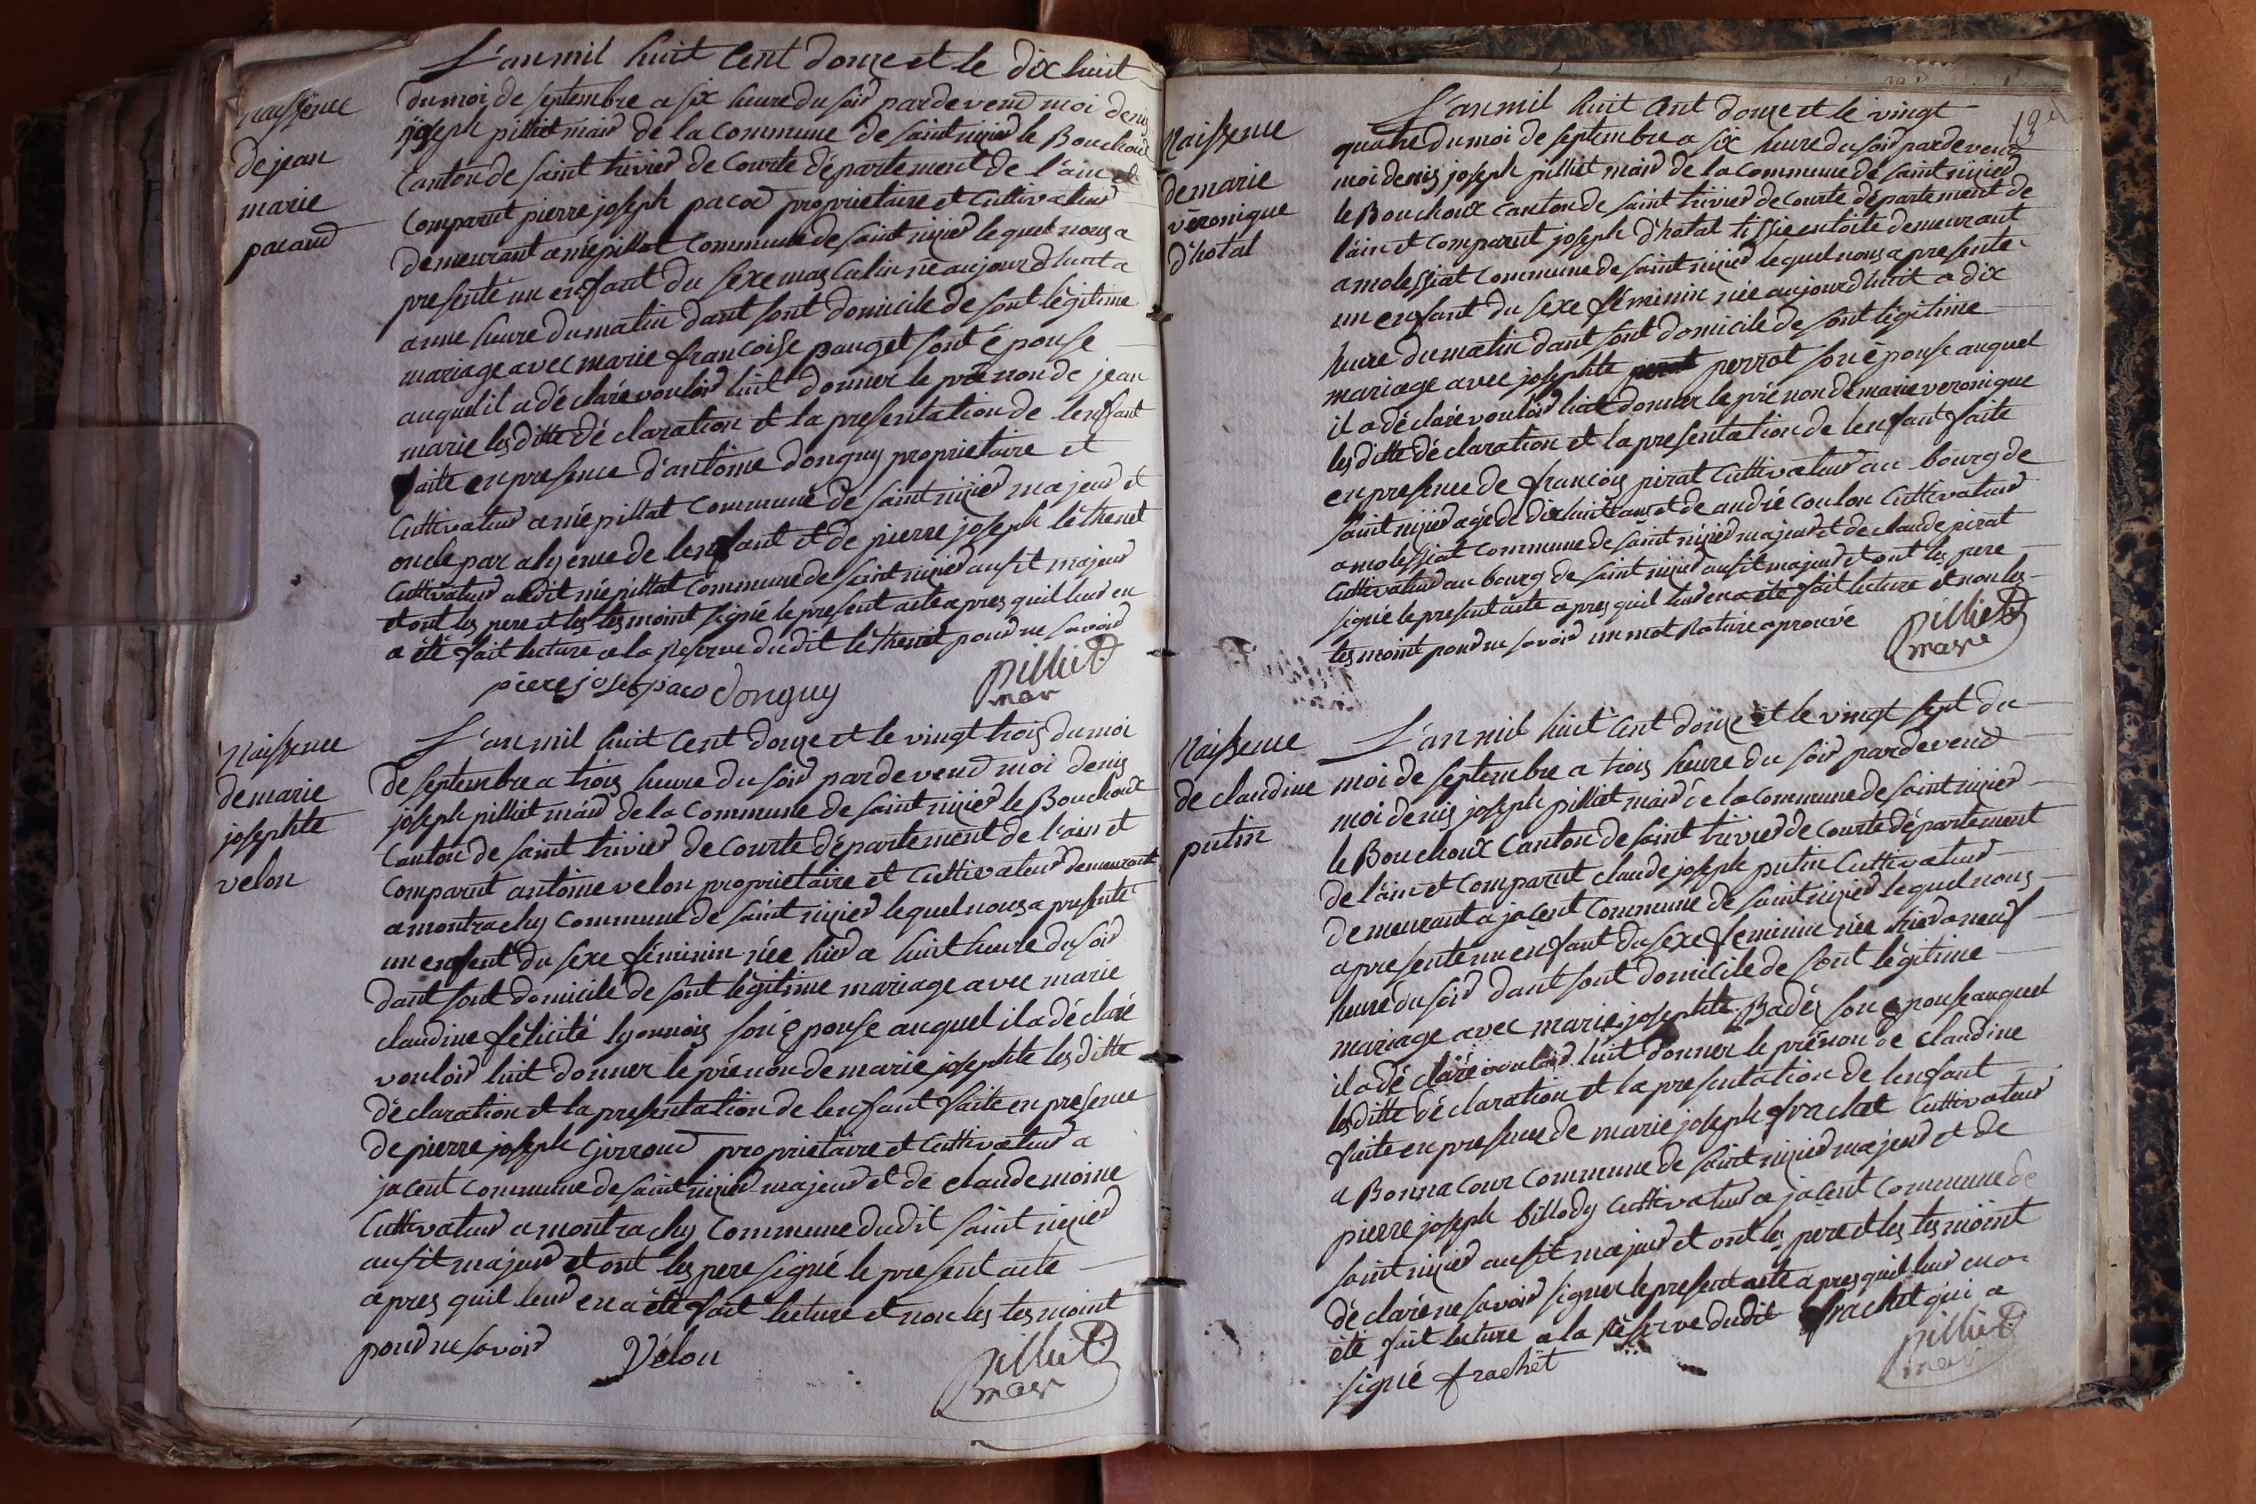 naissence
de jean
marie
pacaud
L'an mil huit cent douze et le dix huit
du moi de septembre a six heure du soir pardevend moi denis
joseph pilliet mair de la commune de saint nizier le Bouchoux
canton de saint trivier de courte département de l'ain et
comparut pierre joseph pacod proprietaire et cultivateur
demeurant a népillat commune de saint nizier le quel nous a
presenté un enfant du sexe masculin né aujourdhuit a
a une heure du matin dant sont domicile de sont légitime
mariage avec marie francoise pauget sont épouse
auquel il a déclaré vouloir luit donner le prénon de jean
marie les ditte déclaration et la presentation de lenfant
faite en presence d'antoine donguy proprietaire et
cultivateur a népillat commune de saint nizier majeur et
oncle par alyence de lenfant et de pierre joseph léthenet
cultivateur audit népillat commune de saint nizier ausit majeur
et ont les pere et les tesmoint signé le present acte apres quil leur en
a été fait lecture a la reserve dudit léthenet pour ne savoir
piere josep paco donguy pilliet
mar
Naissence
de marie
josephte
velon
L'an mil huit cent douze et le vingt trois du moi
de septembre a trois heure du soir pardevend moi denis
joseph pilliet mair de la commune de saint nizier le Bouchoux
canton de saint trivier de courte département de l'ain et
comparut antoine velon proprietaire et cultivateur demeurant
a montrachy commune de saint nizier lequel nous a presenté
un enfent du sexe féminin née hier a huit heure du soir
dant sont domicile de sont légitime mariage avec marie
claudine félicité lyonnois son épouse auquel il a déclaré
vouloir luit donner le prénon de marie josephte les ditte
déclaration et la presentation de lenfant faite en presence
de pierre joseph Girroud proprietaire et cultivateur a
jacent commune de saint nizier majeur et de claude moine
cultivateur a montrachy commune dudit saint nizier
ausit majeur et ont les pere signé le present acte
apres quil leur en a été fait lecture et non les tesmoint
pour ne savoir Vélon pilliet
mar
Naissence
de marie
véronique
d'hotal
L'an mil huit cent douze et le vingt
quatre du moi de septembre a six heure du soir pardevend
moi denis joseph pilliet mair de la commune de saint nizier
le Bouchoux canton de saint trivier de courte département de
l'ain et comparut joseph d'hotal tissie en toile demeurant
a molessiat commune de saint nizier lequel nous a presenté
un enfant du sexe féminin née aujourdhuit a dix
heure du matin dant sont domicile de sont légitime
mariage avec josephte perrot son épouse auquel
il a déclaré vouloir luit donner le prénon de marie veronique
les ditte déclaration et la presentation de lenfant faite
en presence de francois pirat cultivateur au bourg de
saint nizier agé de dix huit ans et de andré coulon cultivateur
a molessiat commune de saint nizier majeur et de claude pirat
cultivateur au bourg de saint nizier ausit majeur et ont les pere
signé le present acte apres quil leur en a été fait lecture et non les
tesmoint pour ne savoir un mot rature aprouvé pilliet
mar
Naissence
de claudine
putin
L'an mil huit cent douze et le vingt sept du
moi de septembre a trois heure du soir pardevend
moi denis joseph pilliet mair de la commune de saint nizier
le Bouchoux canton de saint trivier de courte département
de l'ain et comparut claude joseph putin cultivateur
demeurant a jacent commune de saint nizier lequel nous
a presente un enfant du sexe feminin née hier a neuf
heure du soir dant sont domicile de sont légitime
mariage avec marie josephte Badéz son épouse auquel
il a déclaré vouloir luit donner le prénon de claudine
les ditte déclaration et la presentation de lenfant
faite en presence de marie joseph frachet cultivateur
a Bonnacour commune de saint nizier majeur et de
pierre joseph billody cultivateur a jacent commune de
saint nizier ausit majeur et ont les pere et les tesmoint
déclaré ne savoir signer le present acte apres quil leur en a
été fait lecture a la réserve dudit frachet qui a
signé frachet pilliet
mar